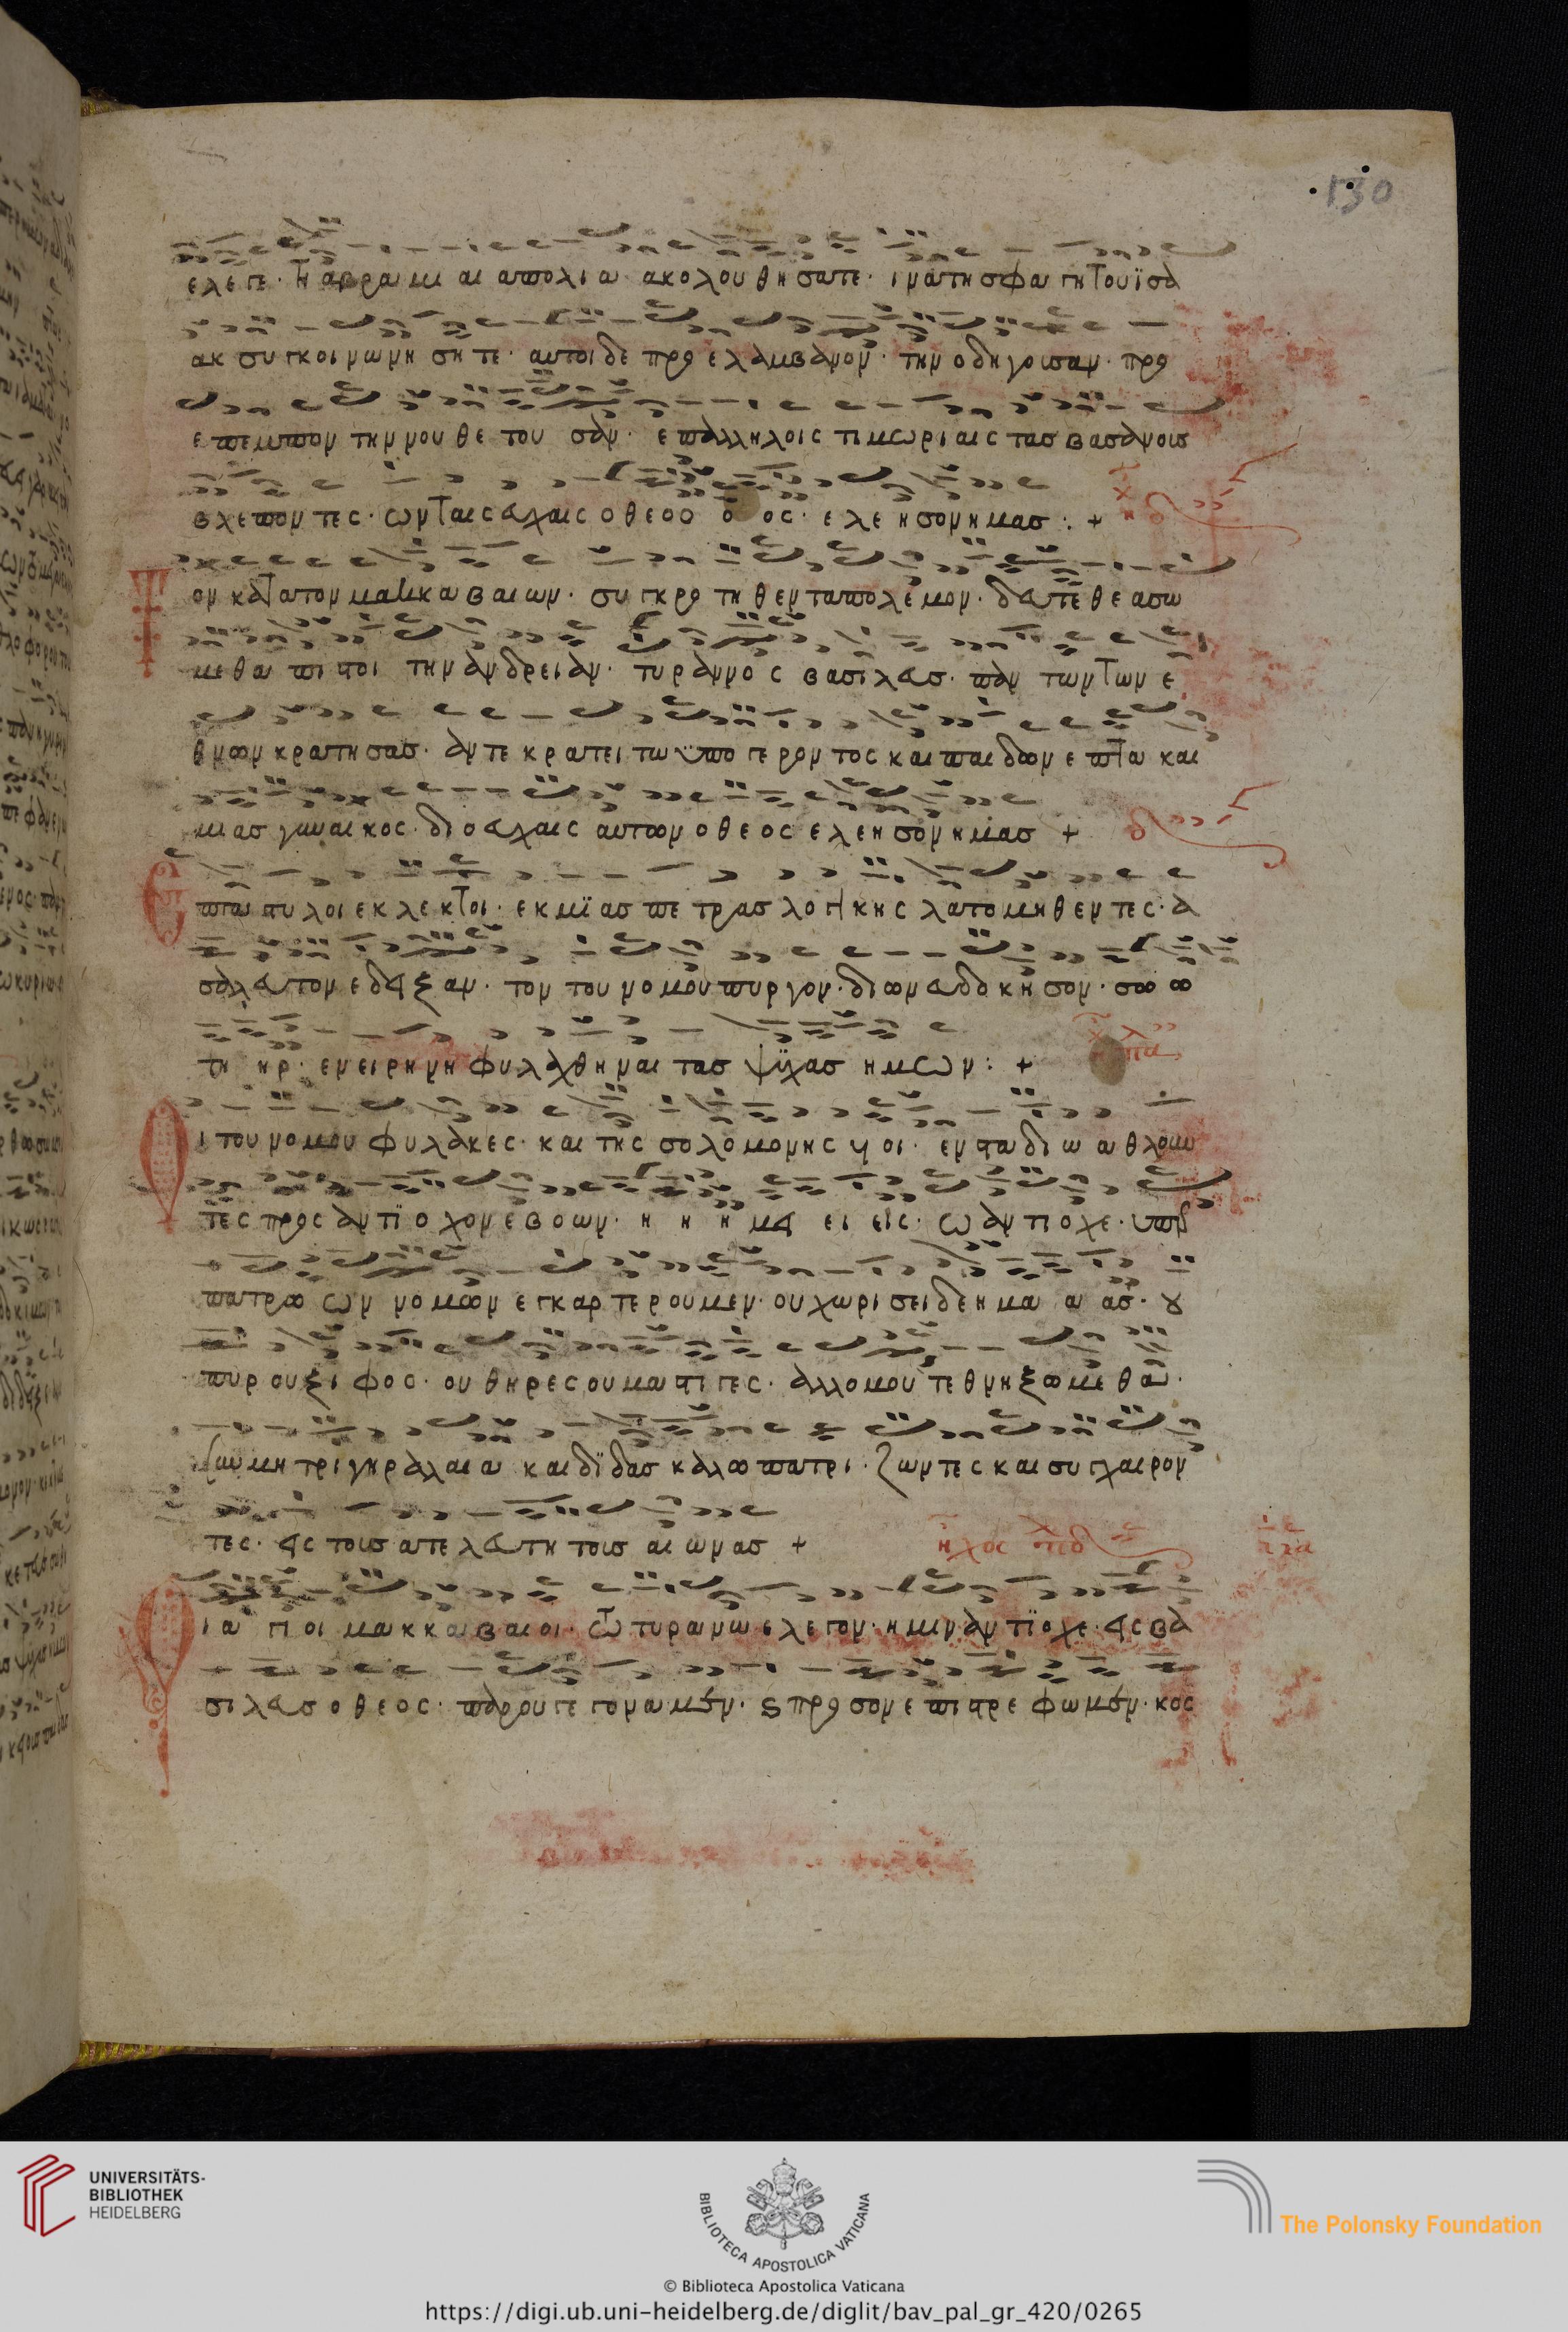 130
ελεγε· τη αβραμι αι απολια ακολουθησατε· ινα τη σφαγη του ϊσα
ακ συγκοινωνησητε· αυτοι δε προελαμβανον· την οδηγουσαν· προ
επεμπον την νουθετουσαν· επαλληλοις τιμωριαις τας βασανοις
βλεποντες· ων ταις ευχαις ο θεοο ο ος· ελεησον ημας :+
Τον κατα των μακκαβαιων· συγκροτηθεντα πολεμον· δευτε θεασω
μεθα πιστοι την ανδρειαν· τυραννος βασιλευς· παντων των ε
θνων κρατησας· αντεκρατειτω ϋπο γεροντος και παιδων επτα και
μιας γυναικος· διο ευχαις αυτων ο θεος ελεησον ημας + δ
Επτα στυλοι εκλεκτοι· εκ μϊας πετρας λογικης λατομηθεντες· α
σαλευτον εδειξαν· τον του νομου πυργον· δι ων ευδοκησον· σω ω
τη ηρ· εν ειρηνη φυλαχθηναι τας ψυχας ημων: +
Οι του νομου φυλακες· και της σολομονης υιοι· εν σταδιω αθλουν
τες προς αντϊοχον εβοων· η η ημει ει εις· ω αντιοχε· υπερ
πατρω ων νομων εγκαρτερουμεν· ου χωρισει δε ημα α ας· ου
πυρ ου ξιφος· ου θηρες ου μαστιγες· αλλ ομου τεθνηξωμεθα·
συν μητρι γηραλαια και δϊδασκαλω πατρι· ζωντες και συγχαιρον
τες· εις τους ατελευτητους αιωνας + ηχος πλ δ
Οι αγιοι μακκαβαιοι· τω τυραννω ελεγον· ημιν αντϊοχε· εις βα
σιλευς ο θεος· παρ ου γεγοναμεν· ϛ προς ον επιστρεφωμεν· κος
UNIVERSITÄTS-
BIBLIOTHEK
HEIDELBERG
BIBLIOTECA APOSTOLICA VATICANA
The Polonsky Foundation
© Biblioteca Apostolica Vaticana
https://digi.ub.uni-heidelberg.de/diglit/bav_pal_gr_420/0265